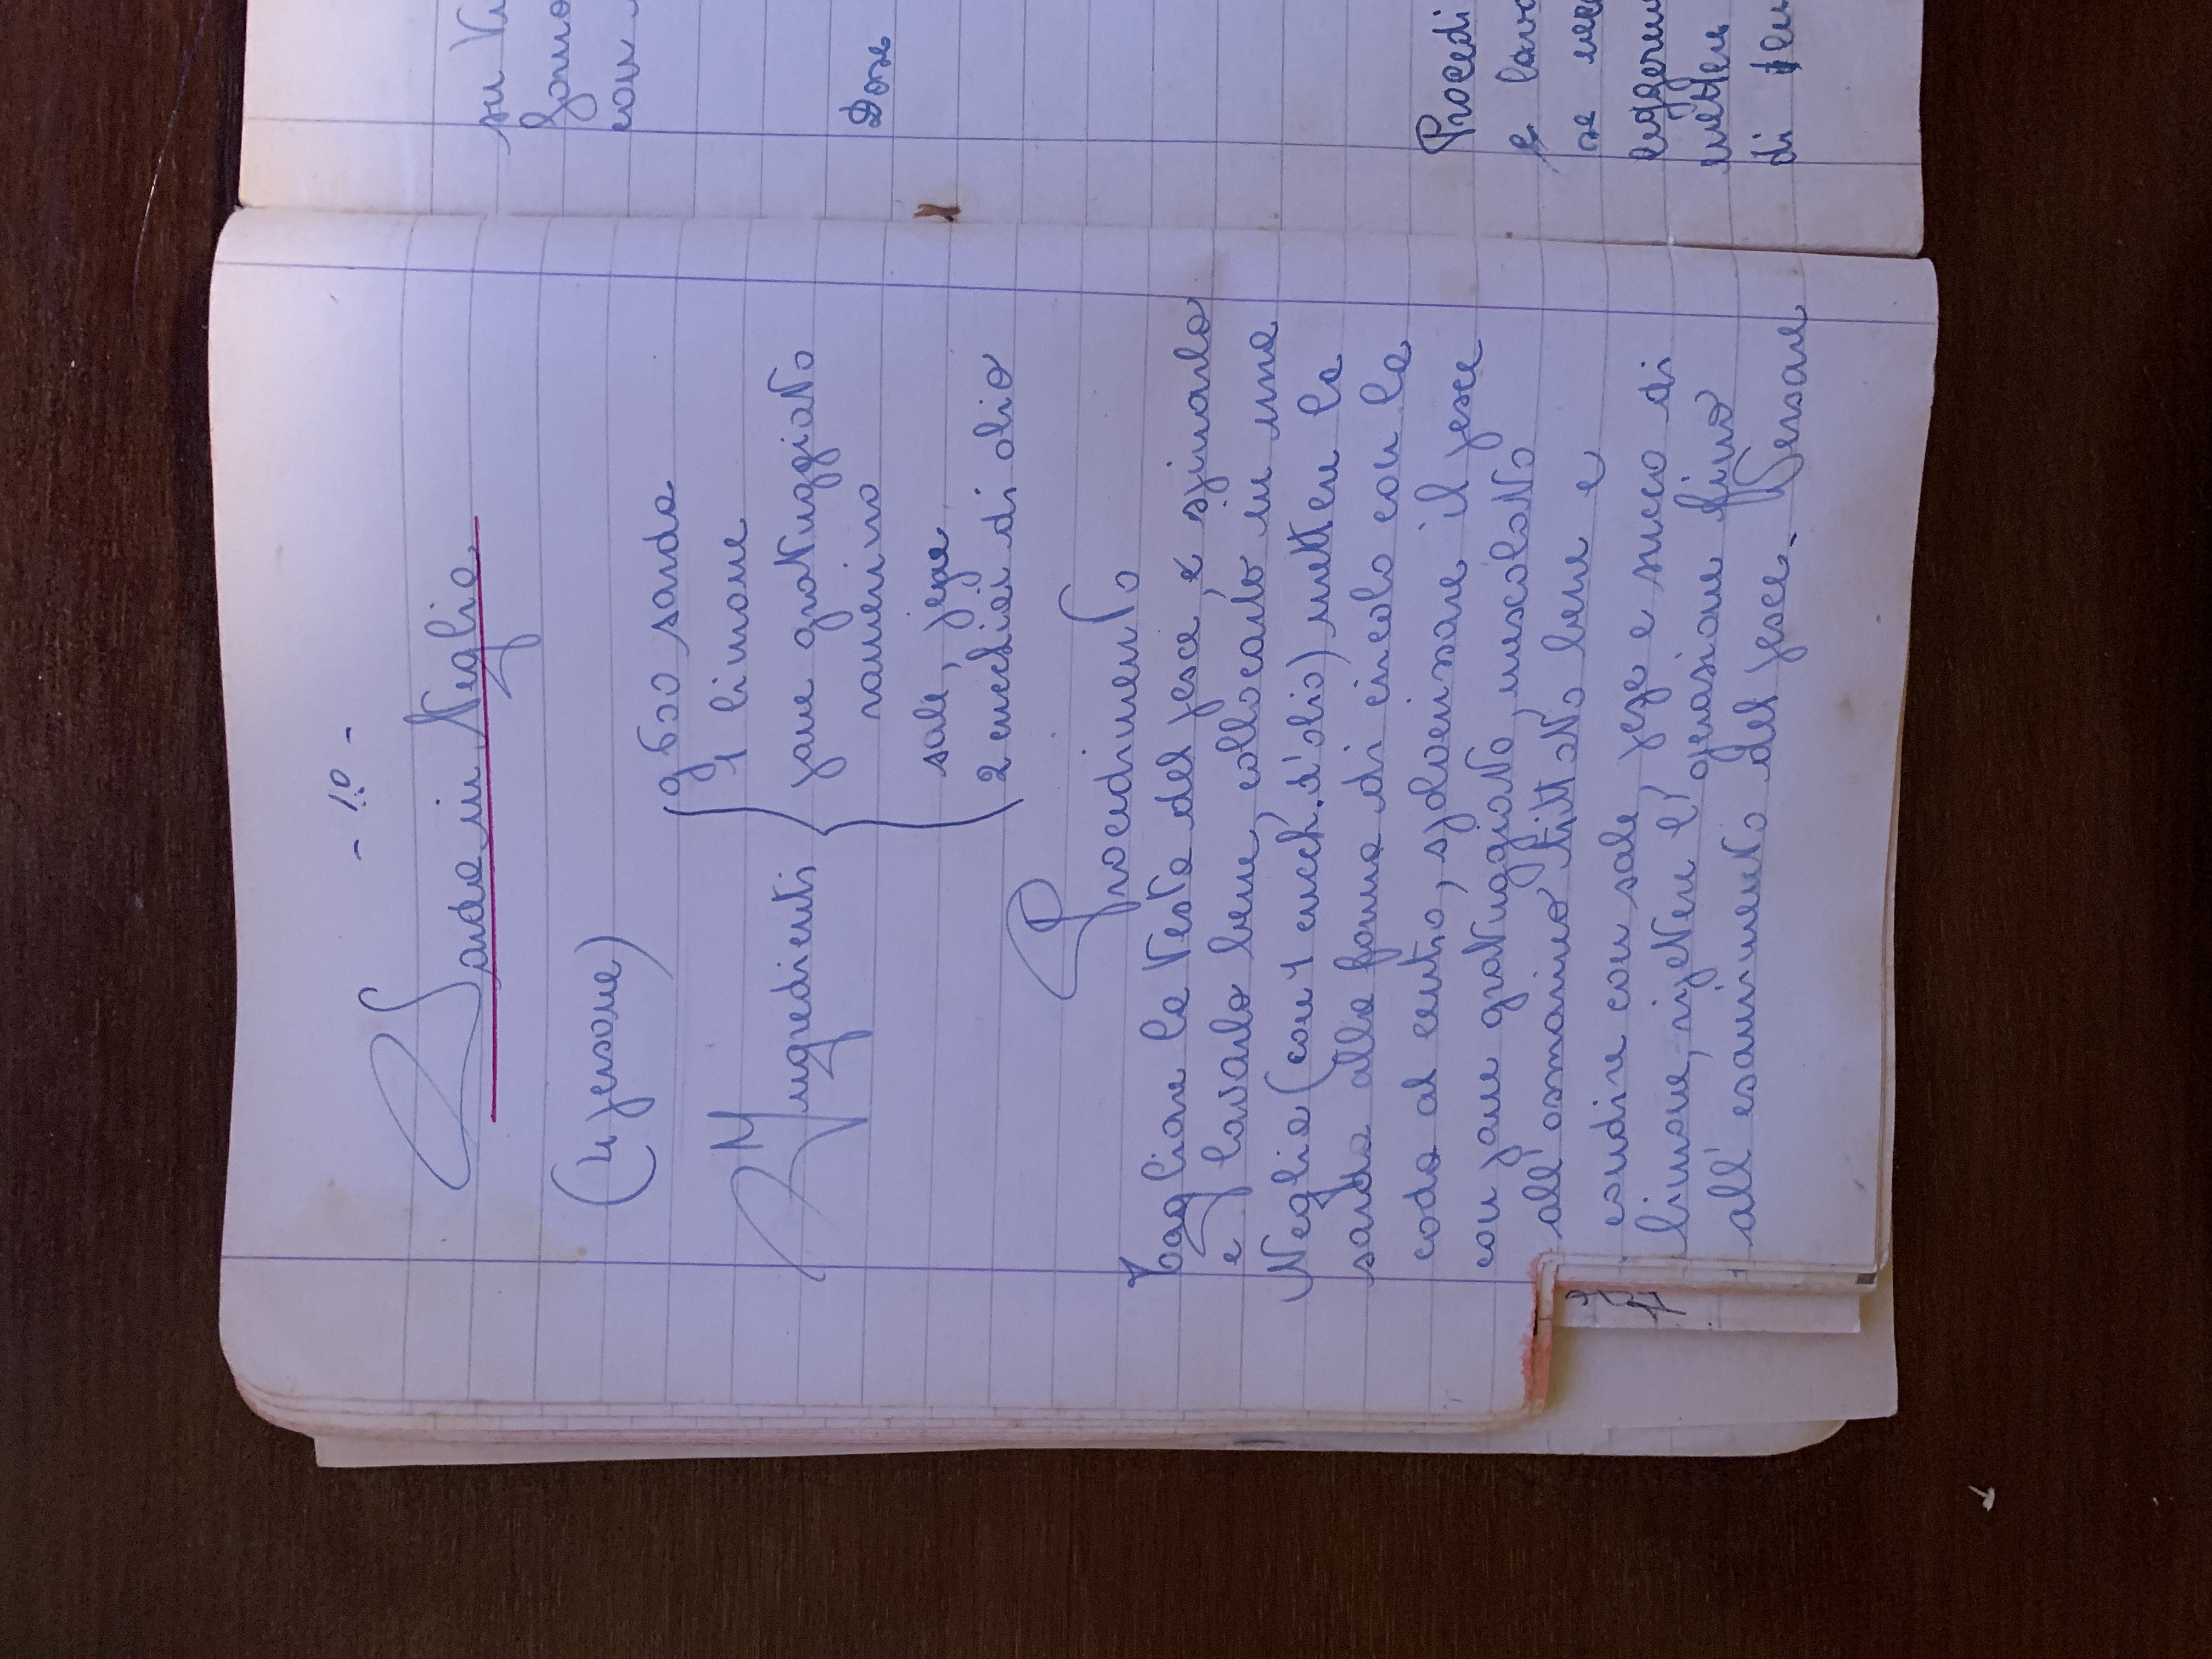 - 10 -
Sarda in Teglia
(4 persone)
Ingredienti
g 600 sarda
1 limone
pane grattuggiato
ramerino
sale, pepe
2 cucchiai di olio
Procedimento
Tagliare la testa del pesce, e spinarlo
e lavarlo bene, collocarlo in una
Teglia (con 1 cucch. d'olio) mettere la
sarda alla forma di circolo con la
coda al centro, spolverizzare il pesce
con pane grattuggiato, mescolato
all'osmarino trittato bene e
condire con sale, pepe e succo di
limone, ripetere l'operazione fino
all'esaurimento del pesce. Versare
su
forno
con
Dose
Procedi
e lava
se nece
leggerme
mettere
di